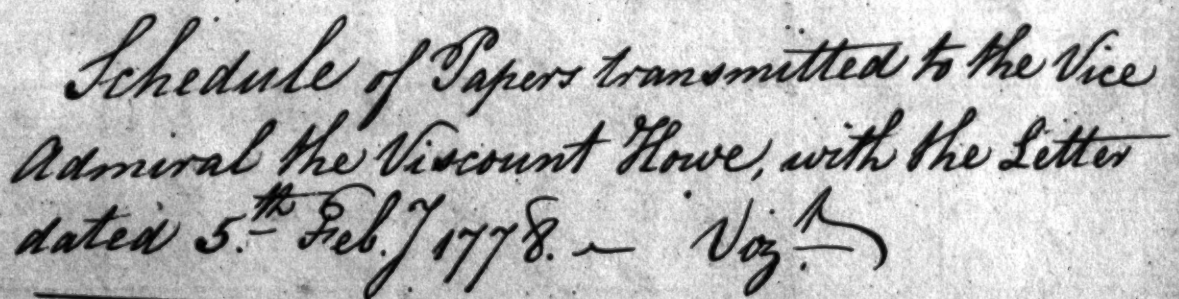 Schedule of Papers transmitted to the Vice
Admiral the Viscount Howe, with the Letter
dated 5.th Feb.y 1778. — Viz.t